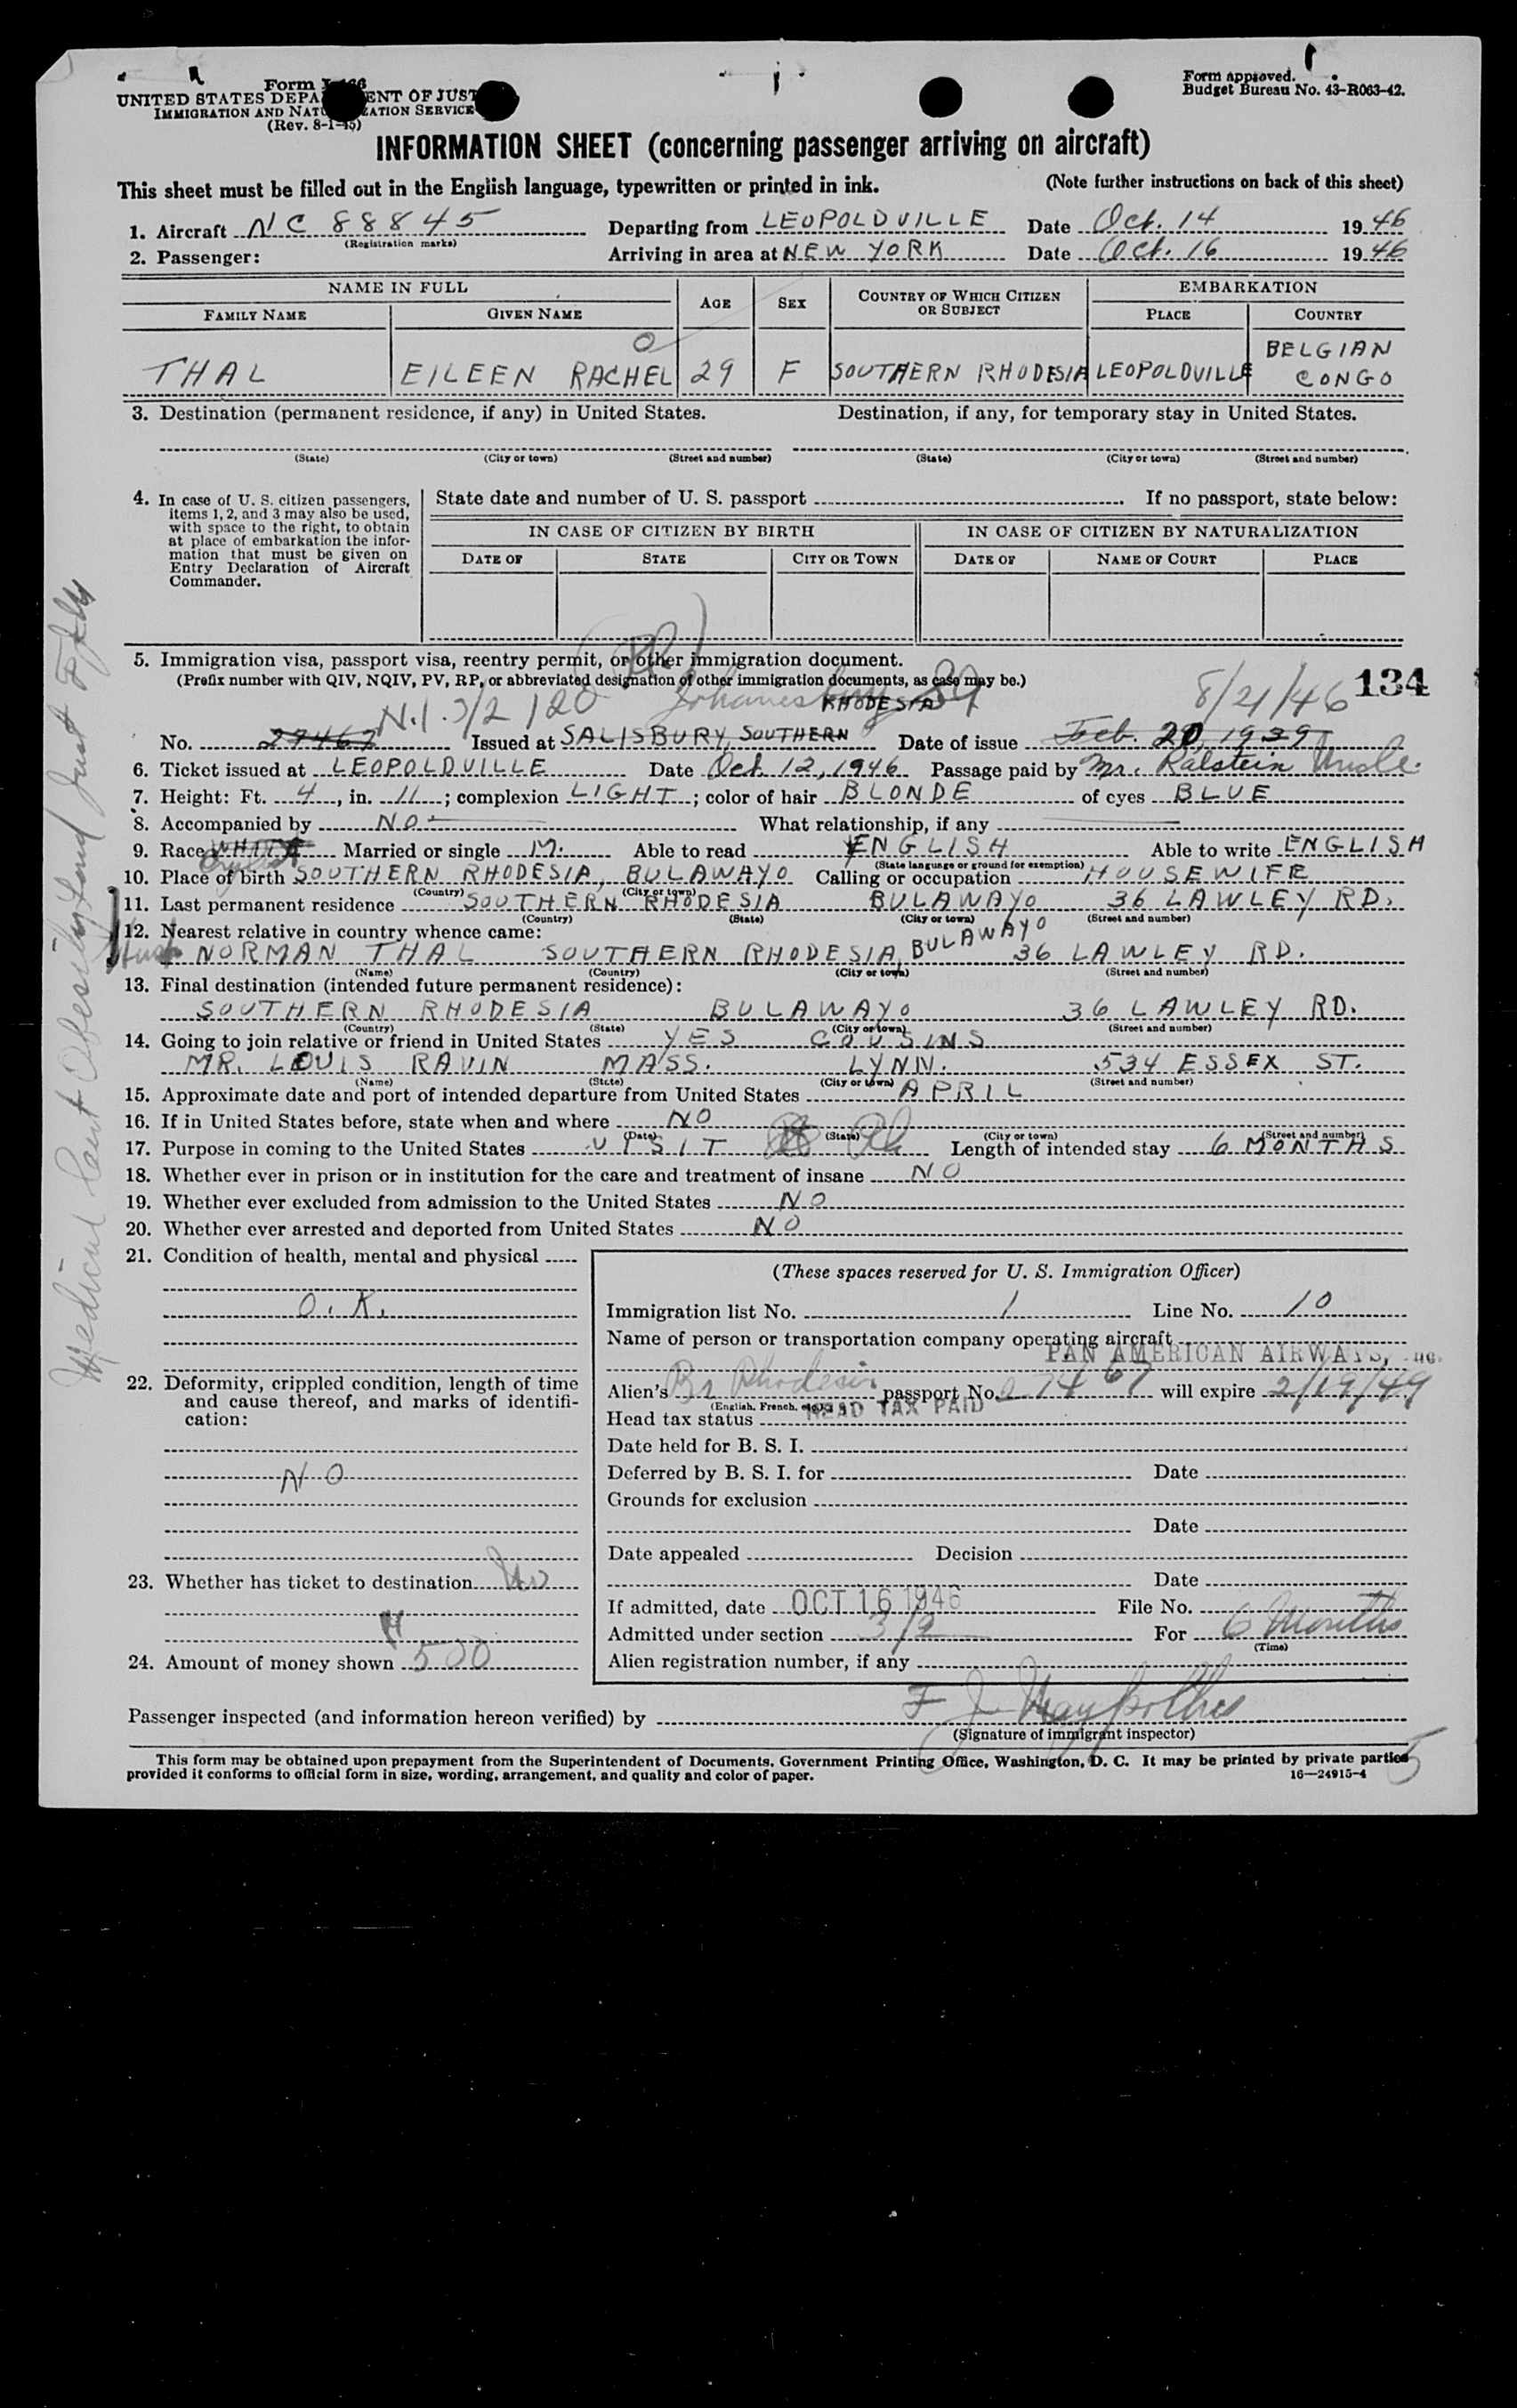 Form I-466
UNITED STATES DEPARTMENT OF JUSTICE
IMMIGRATION AND NATURALIZATION SERVICE
(Rev. 8-1-45)
Form approved.
Budget Bureau No. 43-R063-42.
INFORMATION SHEET (concerning passenger arriving on aircraft)
This sheet must be filled out in the English language, typewritten or printed in ink. (Note further instructions on back of this sheet)
1. Aircraft NC 88845 Departing from LEOPOLDVILLE Date Oct. 14 1946
(Registration marks)
2. Passenger: Arriving in area at NEW YORK Date Oct. 16 1946
NAME IN FULL AGE SEX COUNTRY OF WHICH CITIZEN OR SUBJECT EMBARKATION
FAMILY NAME GIVEN NAME PLACE COUNTRY
THAL EILEEN RACHEL 29 F SOUTHERN RHODESIA LEOPOLDVILLE BELGIAN CONGO
3. Destination (permanent residence, if any) in United States. Destination, if any, for temporary stay in United States.
(State) (City or town) (Street and number) (State) (City or town) (Street and number)
4. In case of U. S. citizen passengers, items 1, 2, and 3 may also be used, with space to the right, to obtain at place of embarkation the information that must be given on Entry Declaration of Aircraft Commander.
State date and number of U. S. passport . If no passport, state below:
IN CASE OF CITIZEN BY BIRTH IN CASE OF CITIZEN BY NATURALIZATION
DATE OF STATE CITY OR TOWN DATE OF NAME OF COURT PLACE
5. Immigration visa, passport visa, reentry permit, or other immigration document.
(Prefix number with QIV, NQIV, PV, RP, or abbreviated designation of other immigration documents, as case may be.)
134
N.I. 3/2 120 Johannesburg SA 8/21/46
RHODESIA
No. 27467 Issued at SALISBURY, SOUTHERN Date of issue Feb. 20, 1939
6. Ticket issued at LEOPOLDVILLE Date Oct. 12, 1946 Passage paid by Mr. Ralstein Uncle.
7. Height: Ft. 4, in. 11; complexion LIGHT; color of hair BLONDE of eyes BLUE
8. Accompanied by NO What relationship, if any
9. Race WHITE Married or single M. Able to read ENGLISH Able to write ENGLISH
(State language or ground for exemption)
10. Place of birth SOUTHERN RHODESIA, BULAWAYO Calling or occupation HOUSEWIFE
(Country) (City or town)
11. Last permanent residence SOUTHERN RHODESIA BULAWAYO 36 LAWLEY RD.
(Country) (State) (City or town) (Street and number)
12. Nearest relative in country whence came:
Husb NORMAN THAL SOUTHERN RHODESIA, BULAWAYO 36 LAWLEY RD.
(Name) (Country) (City or town) (Street and number)
13. Final destination (intended future permanent residence):
SOUTHERN RHODESIA BULAWAYO 36 LAWLEY RD.
(Country) (State) (City or town) (Street and number)
14. Going to join relative or friend in United States YES COUSINS
MR. LOUIS RAVIN MASS. LYNN. 534 ESSEX ST.
(Name) (State) (City or town) (Street and number)
15. Approximate date and port of intended departure from United States APRIL
16. If in United States before, state when and where NO
(Date) (State) (City or town) (Street and number)
17. Purpose in coming to the United States VISIT Length of intended stay 6 MONTHS
18. Whether ever in prison or in institution for the care and treatment of insane NO
19. Whether ever excluded from admission to the United States NO
20. Whether ever arrested and deported from United States NO
21. Condition of health, mental and physical
O.K.
22. Deformity, crippled condition, length of time and cause thereof, and marks of identification:
NO
23. Whether has ticket to destination No
24. Amount of money shown 500
(These spaces reserved for U. S. Immigration Officer)
Immigration list No. 1 Line No. 10
Name of person or transportation company operating aircraft
PAN AMERICAN AIRWAYS, Inc.
Alien's Br Rhodesia passport No. 27467 will expire 2/19/49
(English, French, etc.)
Head tax status HEAD TAX PAID
Date held for B. S. I.
Deferred by B. S. I. for Date
Grounds for exclusion
Date
Date appealed Decision
Date
If admitted, date OCT 16 1946 File No.
Admitted under section 3/2 For 6 Months
(Time)
Alien registration number, if any
Passenger inspected (and information hereon verified) by
(Signature of immigrant inspector)
This form may be obtained upon prepayment from the Superintendent of Documents, Government Printing Office, Washington, D. C. It may be printed by private parties
provided it conforms to official form in size, wording, arrangement, and quality and color of paper. 16—24915-4
5
Medical Cert Obesity